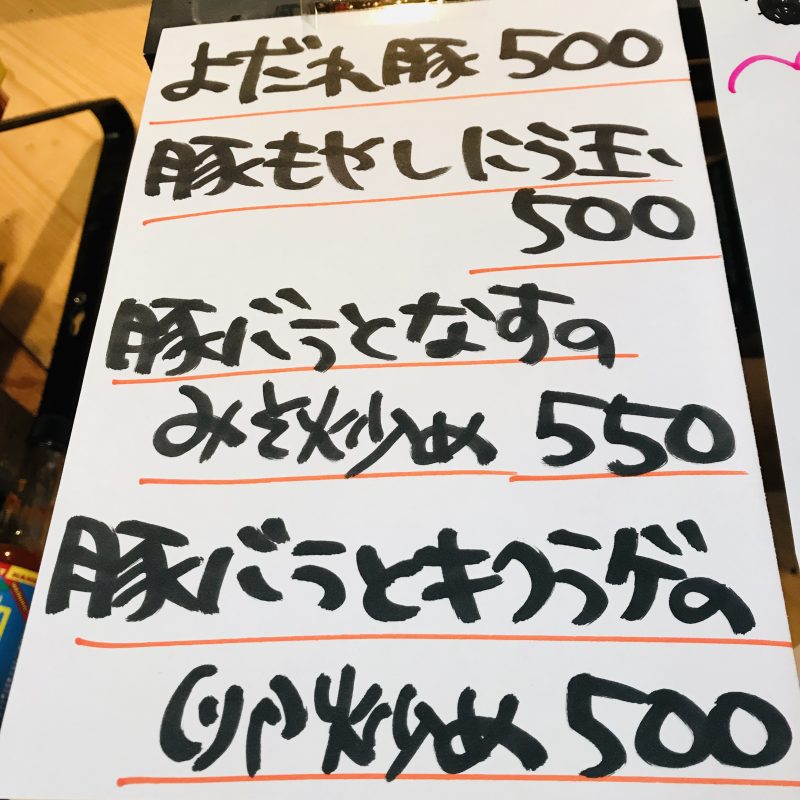 よだれ豚 500
豚もやしにら玉
500
豚バラとなすの
みそ炒め 550
豚バラとキクラゲの
卵炒め 500